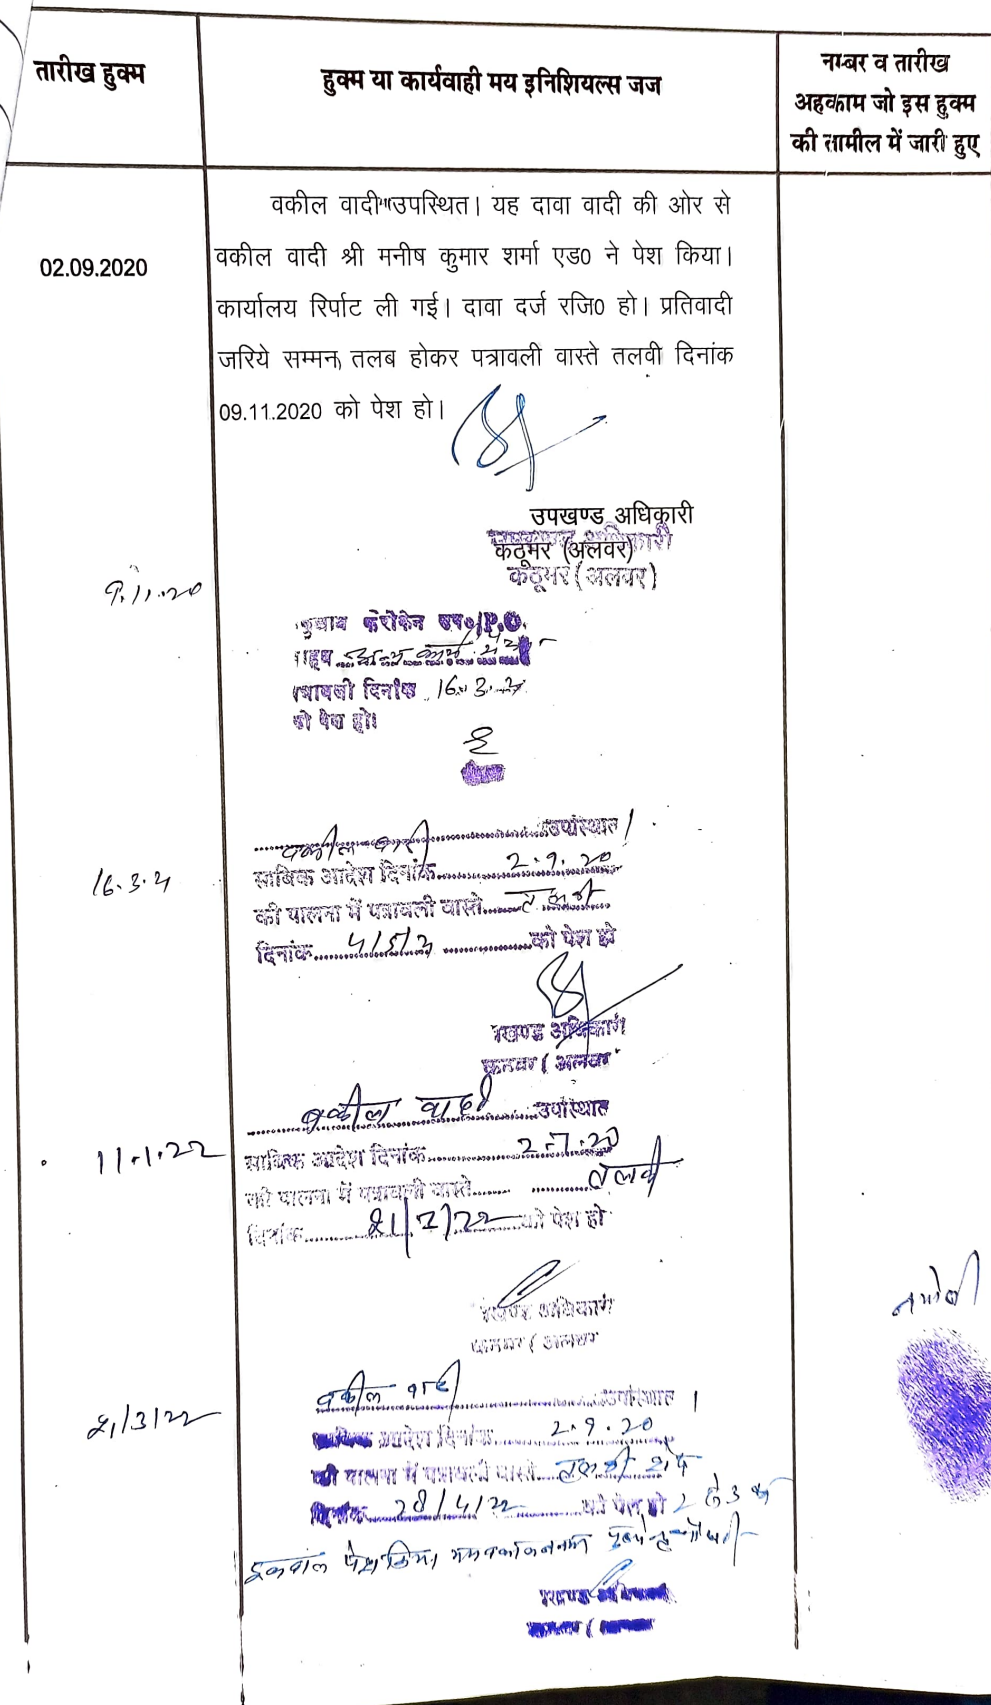 तारीख हुक्म
हुक्म या कार्यवाही मय इनिशियल्स जज
नम्बर व तारीख
अहकाम जो इस हुक्म
की तामील में जारी हुए
02.09.2020
वकील वादी उपस्थित। यह दावा वादी की ओर से
वकील वादी श्री मनीष कुमार शर्मा एड0 ने पेश किया।
कार्यालय रिर्पाट ली गई। दावा दर्ज रजि0 हो। प्रतिवादी
जरिये सम्मन तलब होकर पत्रावली वास्ते तलवी दिनांक
09.11.2020 को पेश हो।
उपखण्ड अधिकारी
कठूमर (अलवर)
कठूमर (अलवर)
9.11.20
P.O.
दिनांक 16.3.21
को पेश हो।
16.3.21
वकील वादी उपस्थित।
साबिक आदेश दिनांक 2.9.20
की पालना में पत्रावली वास्ते तलवी
दिनांक 4/5/21 को पेश हो
खण्ड अधिकारी
(अलवर
11.1.22
वकील वादी उपस्थित
साबिक आदेश दिनांक 2.9.20
की पालना में पत्रावली वास्ते तलवी
दिनांक 21/2/22 को पेश हो
खण्ड अधिकारी
( अलवर
21/3/22
वकील वादी उपस्थित।
साबिक आदेश दिनांक 2.9.20
की पालना में पत्रावली वास्ते तलवी शेष
दिनांक 28/4/22 को पेश हो 2 ता 3 का
इकबाल पेश किया